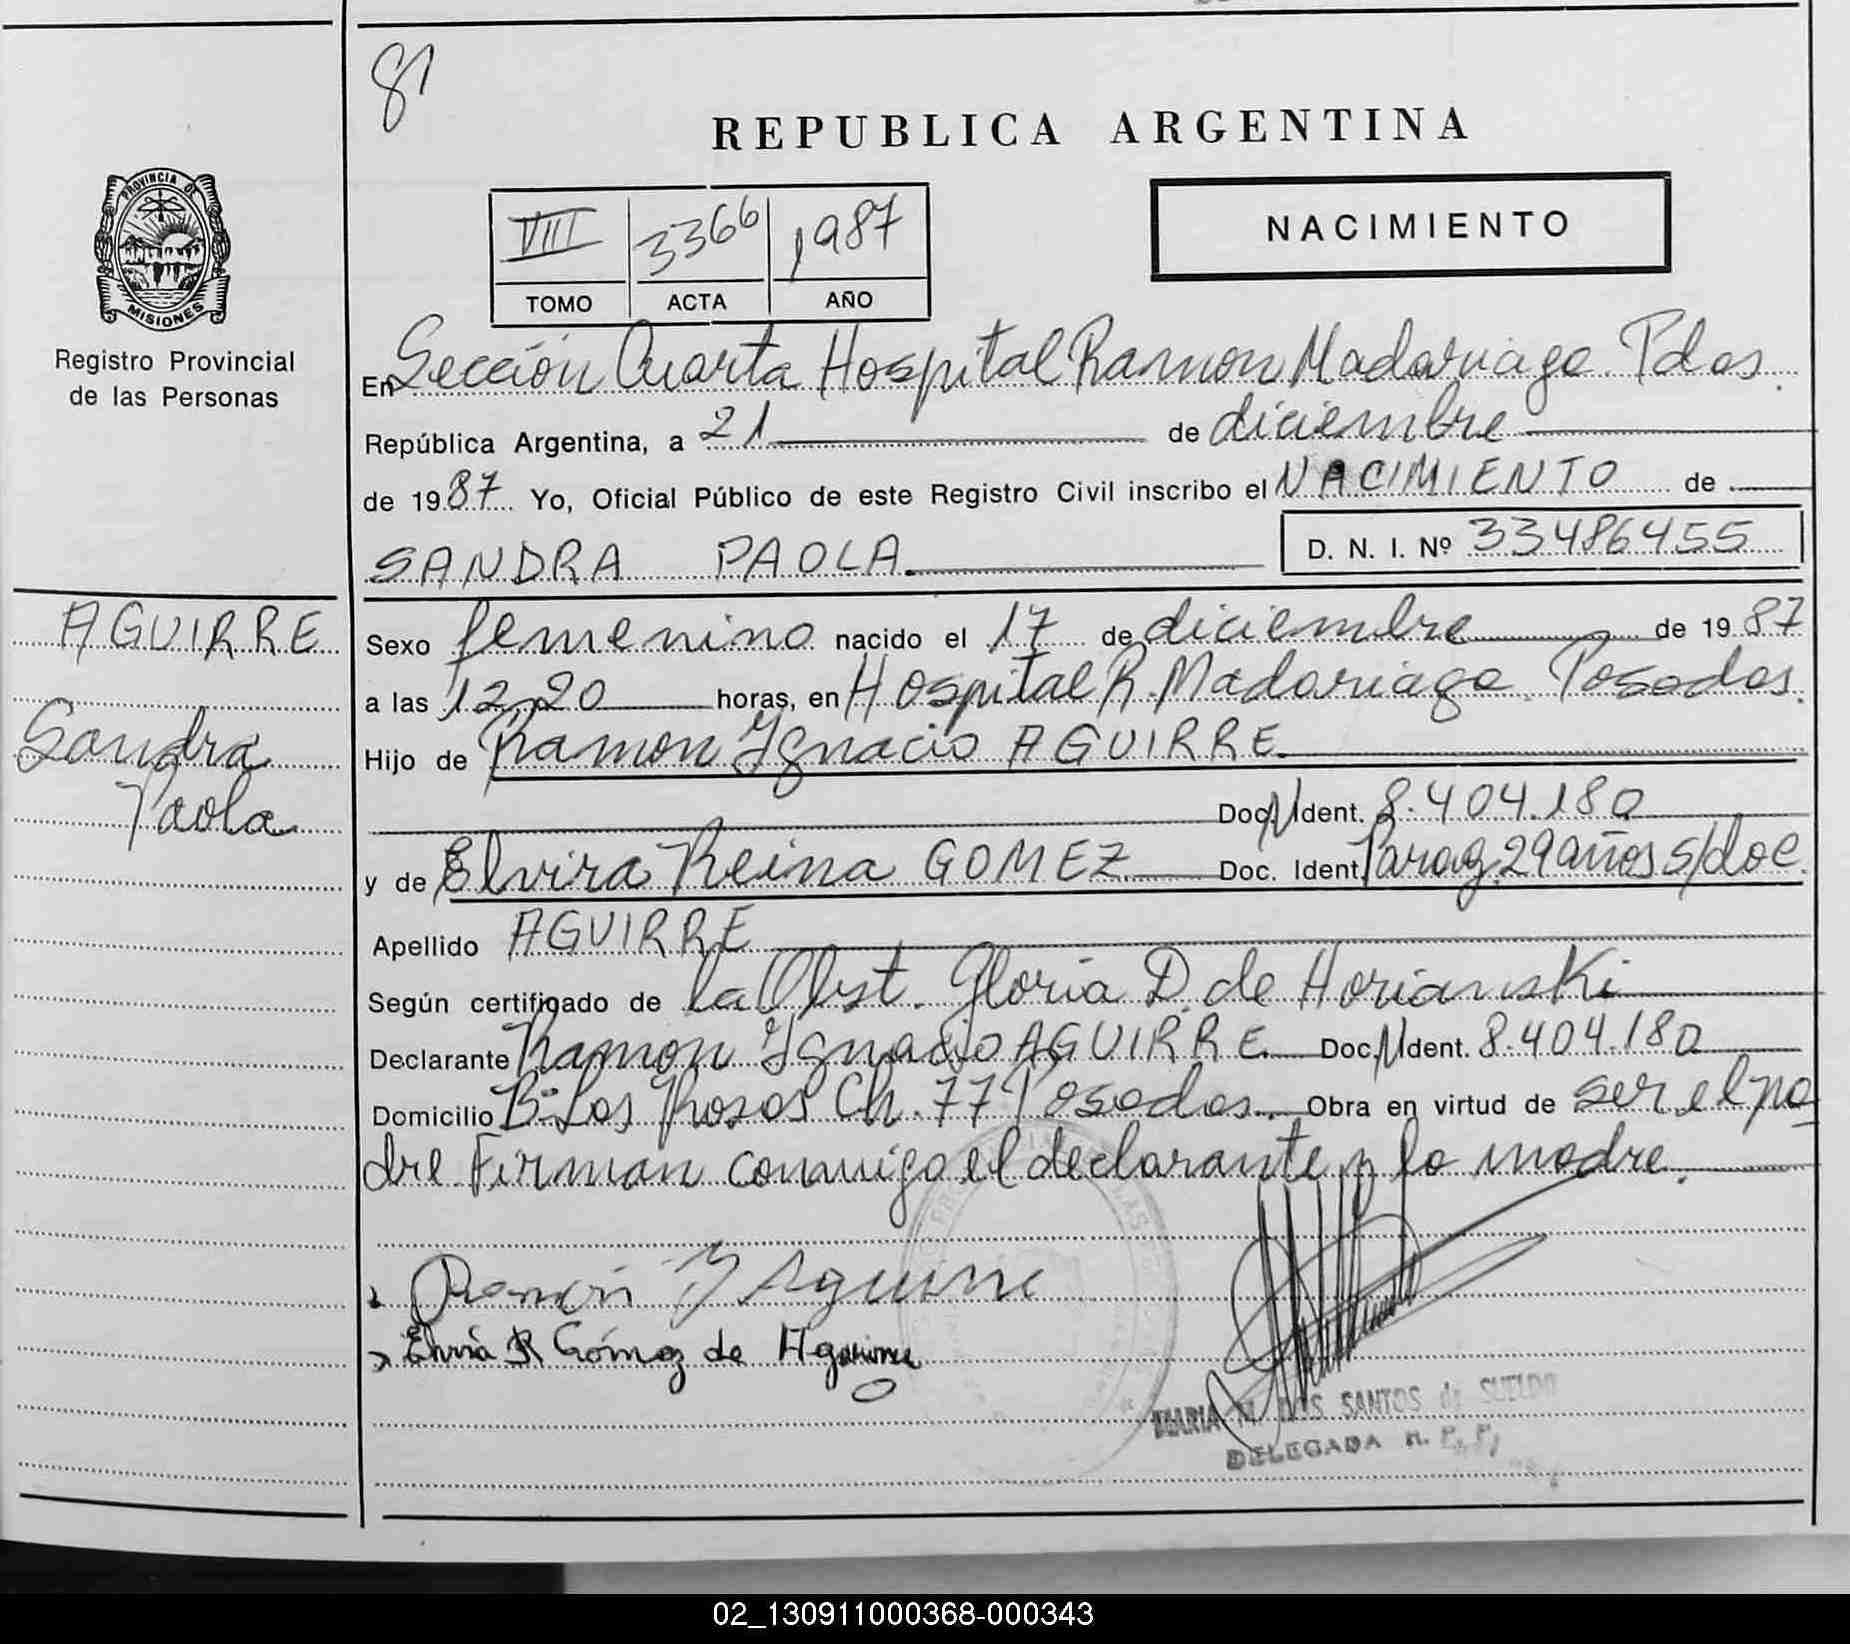 81
REPUBLICA ARGENTINA
PROVINCIA DE
MISIONES
Registro Provincial
de las Personas
VIII 3366 1987
TOMO ACTA AÑO
NACIMIENTO
En Sección Cuarta Hospital Ramon Madariaga. Pdas.
República Argentina, a 21 de diciembre
de 1987 Yo, Oficial Público de este Registro Civil inscribo el NACIMIENTO de
SANDRA PAOLA.
D. N. I. Nº 33486455
AGUIRRE
Sandra
Paola
Sexo femenino nacido el 17 de diciembre de 1987
a las 12,20 horas, en Hospital R. Madariaga. Posadas.
Hijo de Ramon Ignacio AGUIRRE.
Doc. N Ident. 8.404.180
y de Elvira Reina GOMEZ. Doc. Ident. Parag. 29 años s/doc.
Apellido AGUIRRE
Según certificado de la Obst. Gloria D. de Horianski
Declarante Ramon Ignacio AGUIRRE. Doc. N Ident. 8.404.180
Domicilio Bº Los Rosas Ch. 77 Posadas. Obra en virtud de ser el pa
dre. Firman conmigo el declarante y la madre.
Ramón I Aguirre
Elvira R Gómez de Aguirre
MARIA M. DOS SANTOS de SUELDO
DELEGADA R. P. P.
02_130911000368-000343